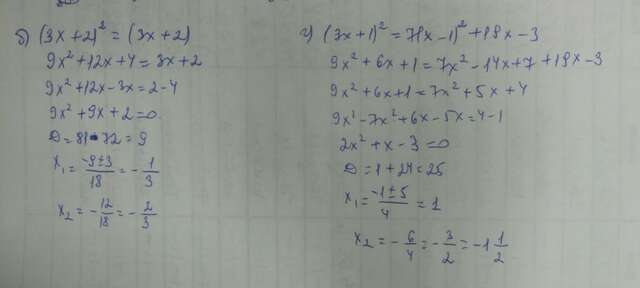 б) (3x+2)² = (3x+2)
9x²+12x+4=3x+2
9x²+12x-3x=2-4
9x²+9x+2=0
D=81-72=9
x₁=\frac{-9±3}{18}=-\frac{1}{3}
x₂=-\frac{12}{18}=-\frac{2}{3}
г) (3x+1)²=7(x-1)²+19x-3
9x²+6x+1=7x²-14x+7+19x-3
9x²+6x+1=7x²+5x+4
9x²-7x²+6x-5x=4-1
2x²+x-3=0
D=1+24=25
x₁=\frac{-1±5}{4}=1
x₂=-\frac{6}{4}=-\frac{3}{2}=-1\frac{1}{2}